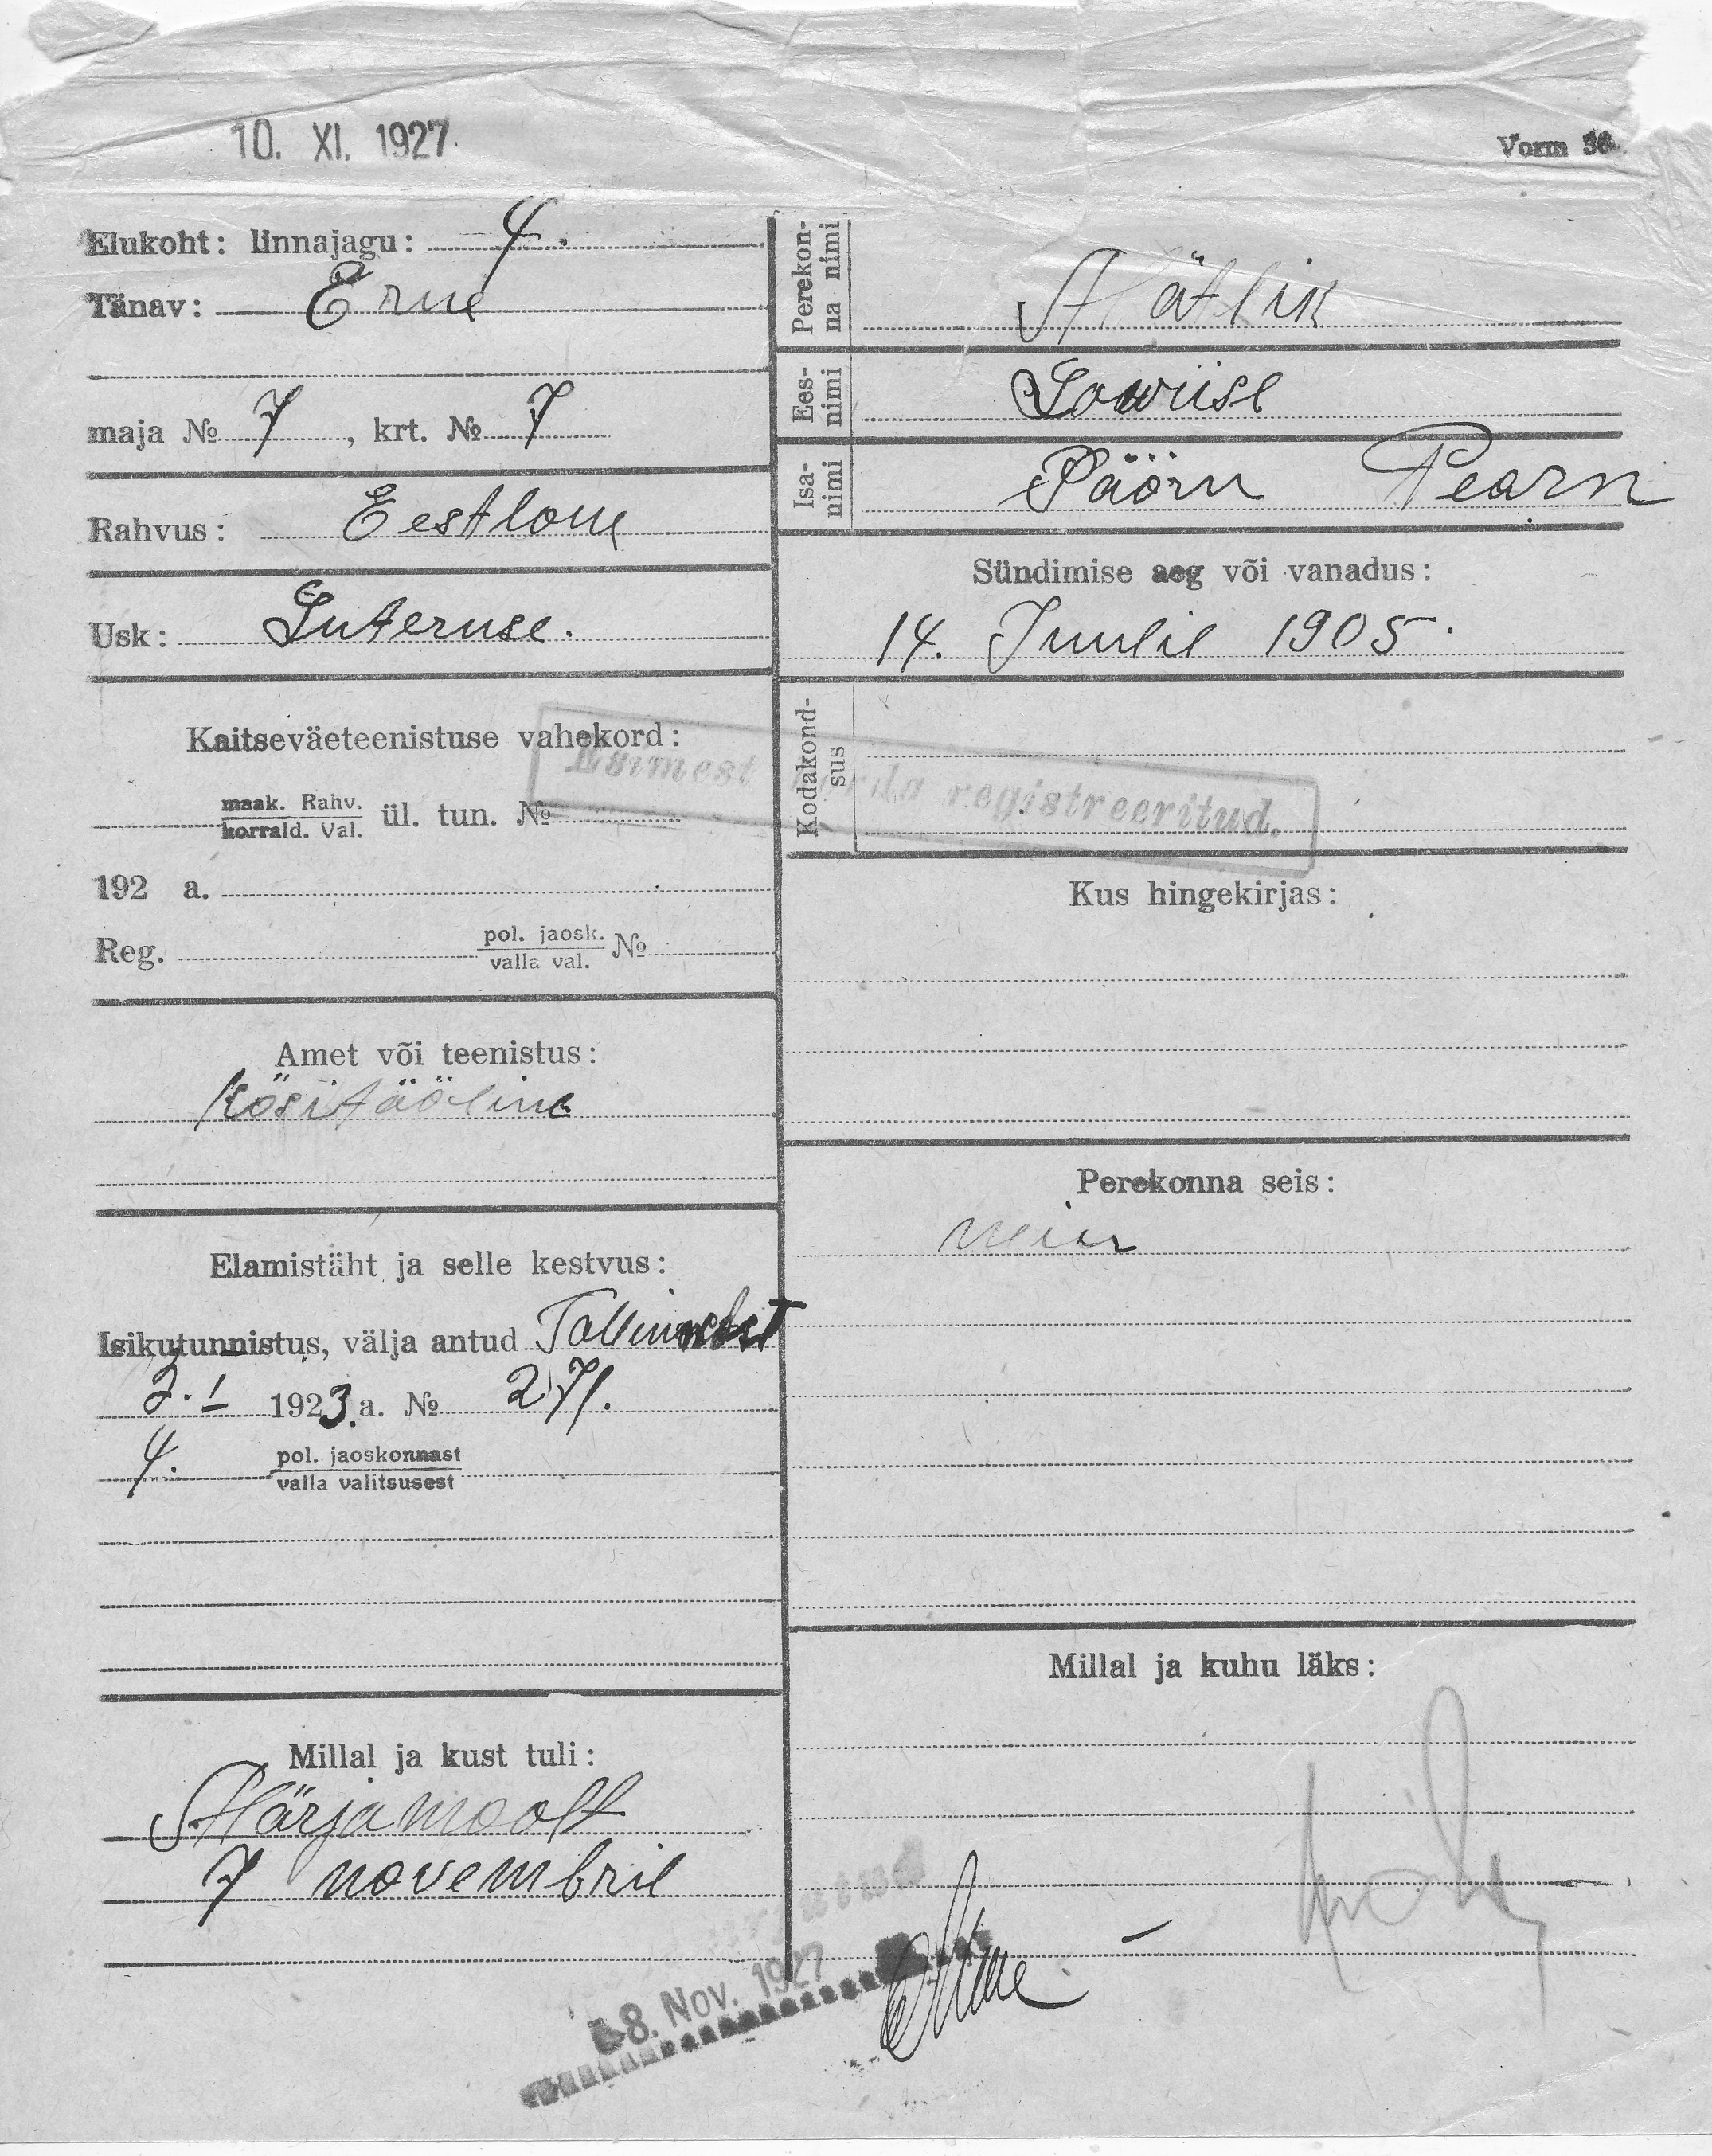 10. XI. 1927.
Vorm 36.
Elukoht: linnajagu: 4.
Tänav: Erne
maja № 7, krt. № 7
Rahvus: Eestlane
Usk: Luteruse.
Kaitseväeteenistuse vahekord:
maak. Rahv.
korrald. Val. ül. tun. №
192 a.
Reg. pol. jaosk. №
valla val.
Amet või teenistus:
käsitööline
Elamistäht ja selle kestvus:
Isikutunnistus, välja antud
3. I 1923. a. № 271.
4. pol. jaoskonnast
valla valitsusest
Millal ja kust tuli:
Märjamaalt
7 novembril
Perekon-
na nimi
Mätlik
Ees-
nimi
Lowiise
Isa-
nimi
Päärn Pearn
Sündimise aeg või vanadus:
14. Juulil 1905.
Kodakond-
sus
Esimest korda registreeritud.
Kus hingekirjas:
Perekonna seis:
neiu
Millal ja kuhu läks:
8. Nov. 1927